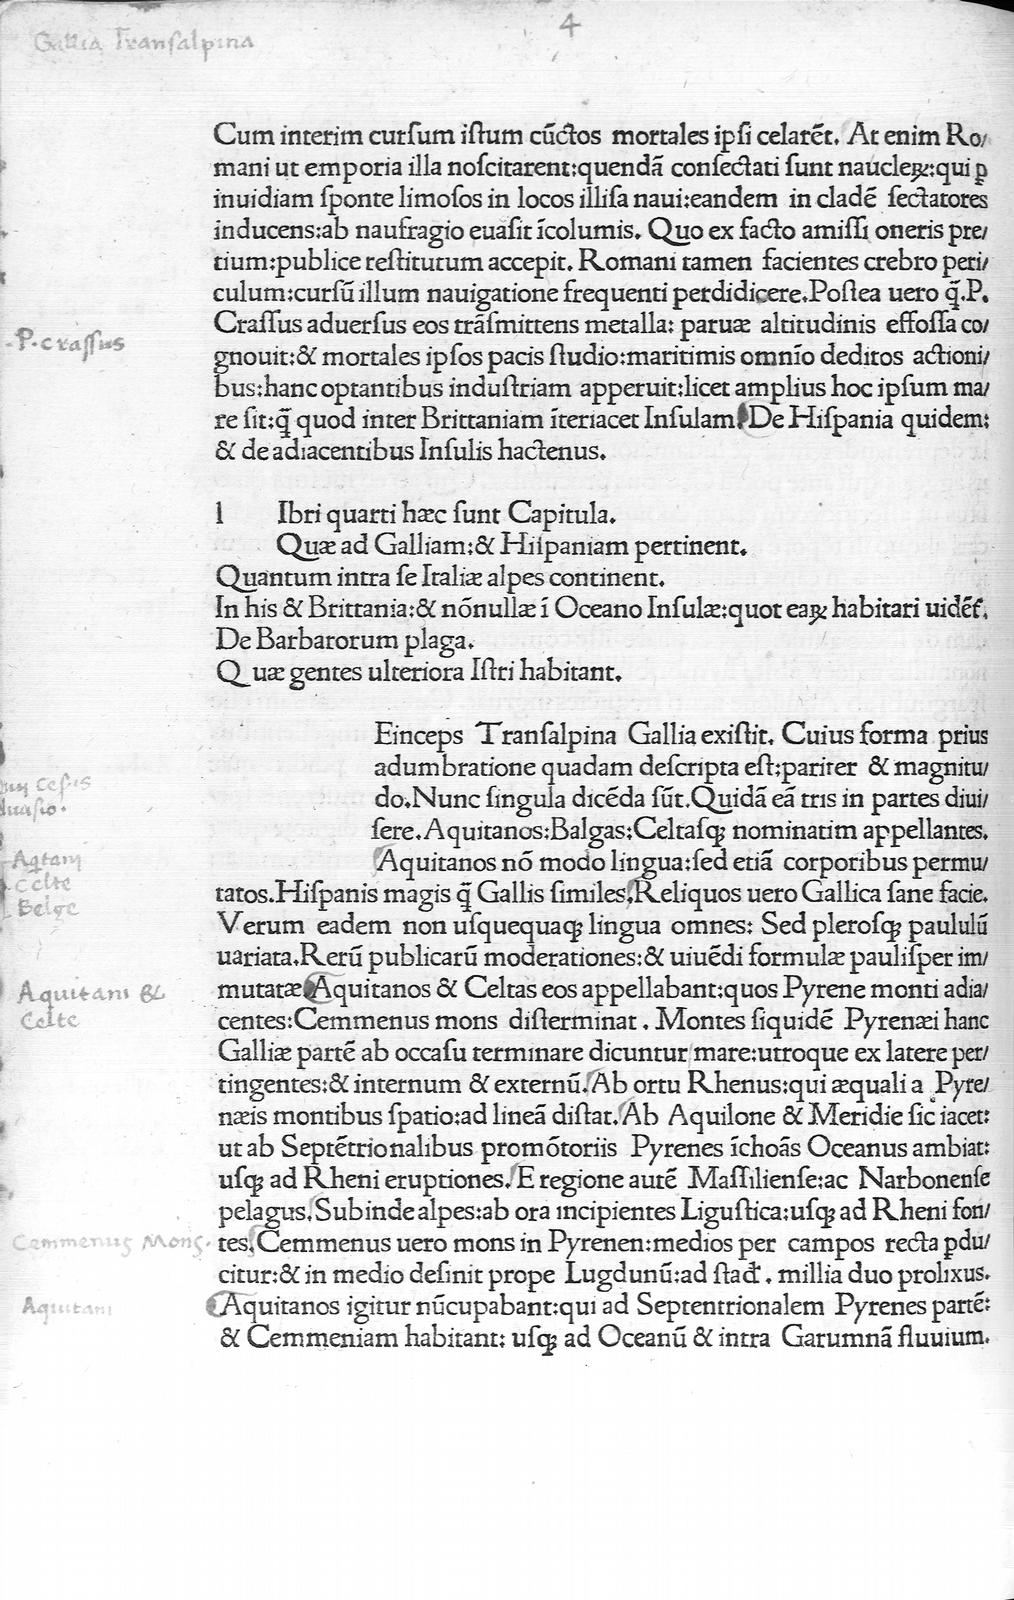 Gallia Transalpina
4
Cum interim curſum iſtum cūctos mortales ipſi celarēt. At enim Ro/
mani ut emporia illa noſcitarent:quendā conſectati ſunt naucleꝝ:qui ꝑ
inuidiam ſponte limoſos in locos illiſa naui:eandem in cladē ſectatores
inducens:ab naufragio euaſit īcolumis. Quo ex facto amiſſi oneris pre/
tium:publice reſtitutum accepit. Romani tamen facientes crebro peri/
culum:curſū illum nauigatione frequenti perdidicere.Poſtea uero q̄.P.
Craſſus aduerſus eos trāſmittens metalla: paruæ altitudinis effoſſa co/
P. crassus
gnouit:& mortales ipſos pacis ſtudio:maritimis omnīo deditos actioni/
bus:hanc optantibus induſtriam apperuit:licet amplius hoc ipſum ma/
re ſit:q̄ quod inter Brittaniam īteriacet Inſulam. De Hiſpania quidem:
& de adiacentibus Inſulis hactenus.
l Ibri quarti hæc ſunt Capitula.
Quæ ad Galliam:& Hiſpaniam pertinent.
Quantum intra ſe Italiæ alpes continent.
In his & Brittania:& nōnullæ ī Oceano Inſulæ:quot eaꝝ habitari uidēt.
De Barbarorum plaga.
Quæ gentes ulteriora Iſtri habitant.
Einceps Tranſalpina Gallia exiſtit. Cuius forma prius
adumbratione quadam deſcripta eſt:pariter & magnitu/
do.Nunc ſingula dicēda ſūt.Quidā eā tris in partes diui/
ſere.Aquitanos:Balgas:Celtaſqꝫ nominatim appellantes.
Aquitanos nō modo lingua:ſed etiā corporibus permu/
Aqtani
Celte
Belge
tatos.Hiſpanis magis q̄ Gallis ſimiles.Reliquos uero Gallica ſane facie.
Verum eadem non uſquequaqꝫ lingua omnes: Sed pleroſqꝫ paululū
uariata.Rerū publicarū moderationes:& uiuēdi formulæ pauliſper im/
mutatæ Aquitanos & Celtas eos appellabant:quos Pyrene monti adia/
Aquitani &
Celte
centes:Cemmenus mons diſterminat . Montes ſiquidē Pyrenæi hanc
Galliæ partē ab occaſu terminare dicuntur mare:utroque ex latere per/
tingentes:& internum & externū.Ab ortu Rhenus:qui æquali a Pyre/
næis montibus ſpatio:ad lineā diſtat.Ab Aquilone & Meridie ſic iacet:
ut ab Septētrionalibus promōtoriis Pyrenes īchoās Oceanus ambiat:
uſqꝫ ad Rheni eruptiones.E regione autē Maſſilienſe:ac Narbonenſe
pelagus.Subinde alpes:ab ora incipientes Liguſtica:uſqꝫ ad Rheni fon/
tes.Cemmenus uero mons in Pyrenen:medios per campos recta pdu/
Cemmenus Mons.
citur:& in medio deſinit prope Lugdunū:ad ſtad. millia duo prolixus.
Aquitanos igitur nūcupabant:qui ad Septentrionalem Pyrenes partē:
Aquitani
& Cemmeniam habitant: uſqꝫ ad Oceanū & intra Garumnā fluuium.